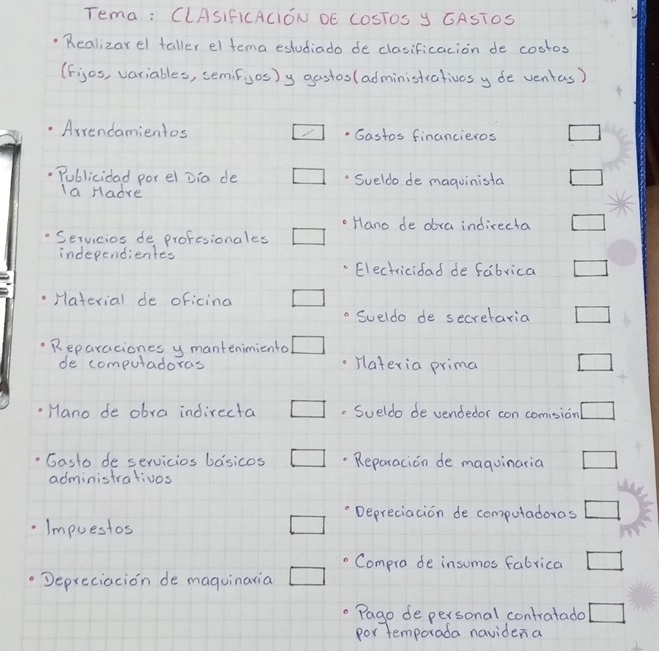 Tema: CLASIFICACIÓN DE COSTOS y GASTOS
• Realizar el taller el tema estudiado de clasificación de costos
(Fijos, variables, semifijos) y gastos (administrativos y de ventas)
• Arrendamientos
• Publicidad por el Día de
la Madre
• Servicios de profesionales
independientes
• Material de oficina
• Reparaciones y mantenimiento
de computadoras
• Mano de obra indirecta
• Gasto de servicios básicos
administrativos
• Impuestos
• Depreciación de maquinaria
• Gastos financieros
• Sueldo de maquinista
• Mano de obra indirecta
• Electricidad de fábrica
• Sueldo de secretaria
• Materia prima
• Sueldo de vendedor con comisión
• Reparación de maquinaria
• Depreciación de computadoras
• Compra de insumos fabrica
• Pago de personal contratado
por temporada navideña